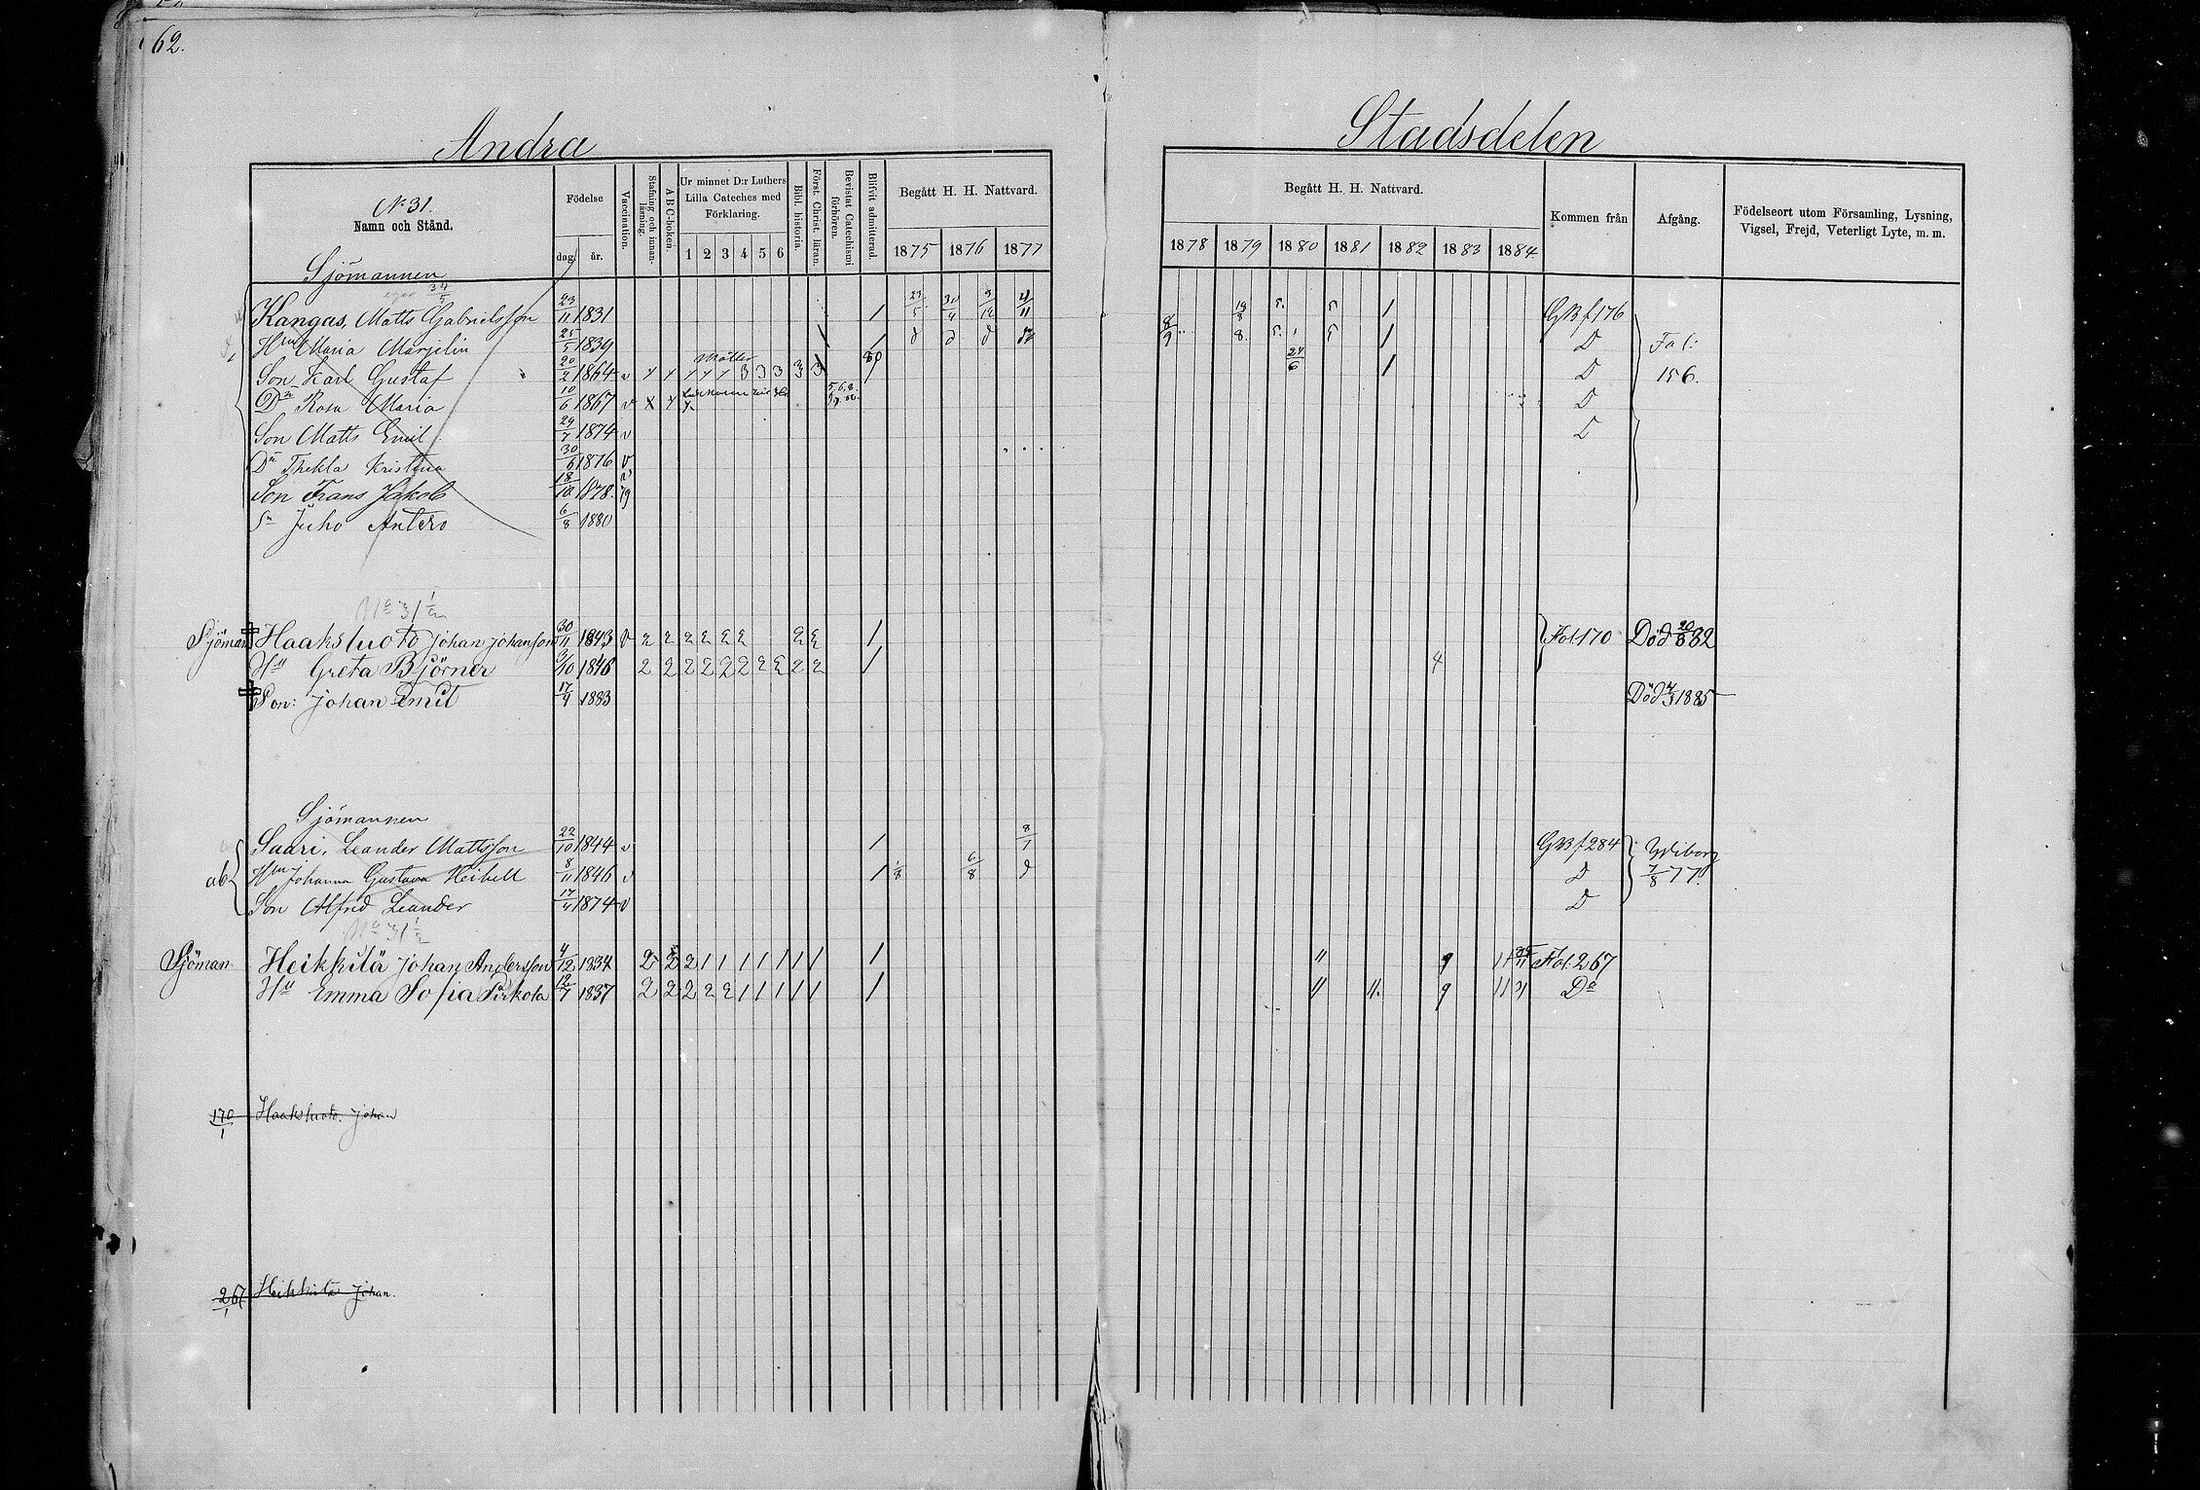 62.
Andra Stadsdelen
No 31.
Namn och Stånd.
Födelse
dag. år.
Vaccination.
Stafning och innanläsning.
A B C-boken.
Ur minnet D:r Luthers Lilla Cateches med Förklaring.
1 2 3 4 5 6
Bibl. historia.
Först. Christ. läran.
Bevistat Catechismi förhören.
Blifvit admitterad.
Begått H. H. Nattvard.
1875 1876 1877
Begått H. H. Nattvard.
1878 1879 1880 1881 1882 1883 1884
Kommen från
Afgång.
Födelseort utom Församling, Lysning, Vigsel, Frejd, Veterligt Lyte, m. m.
Sjömannen
Kangas, Matts Gabrielsson 23/11 1831 / 23/5 19/8 5. 5 1 GB f 176
Hru Maria Marjelin 25/5 1839 / d d d 8/9 8. 5. 5 1 D Fol: 156.
Son Karl Gustaf 20/2 1864 v 3 3 3 3 3 80 24/6 1 D
Dr Rosa Maria 10/6 1867 v x D
Son Matts Emil 29/7 1874 v D
Dr Thekla Kristina 30/6 1876 v
Son Frans Jakob 18/10 1878. v 79
Sn Juho Antero 6/8 1880
No 31 1/2
Sjöman Haaksluoto Johan Johansson 30/11 1843 v 2 2 2 2 2 2 2 2 / Fol. 170 Död 20/8 82
Hu Greta Björner 3/10 1846 2 2 2 2 2 2 2 2 2 2 / 4
Son: Johan Emil 17/9 1883 Död 4/3 1885
Sjömannen
Saari, Leander Mattsson 22/10 1844 v / 8/7 GB f 284 Wiborg
ab Hru Johanna Gustava Heibell 8/11 1846 v / 1/8 6/8 d D 7/8 77.
Son Alfred Leander 17/4 1874 v D
No 31 1/2
Sjöman Heikkilä Johan Andersson 4/12 1834 2 2 2 1 1 1 1 1 1 1 / 11 9 11 Fol: 267
Hu Emma Sofia Pirkola 12/7 1837 2 2 2 2 2 1 1 1 1 1 / 11 11. 9 11 Do
170/1 Haaksluoto. Johan
267/1 Heikkilä Johan.